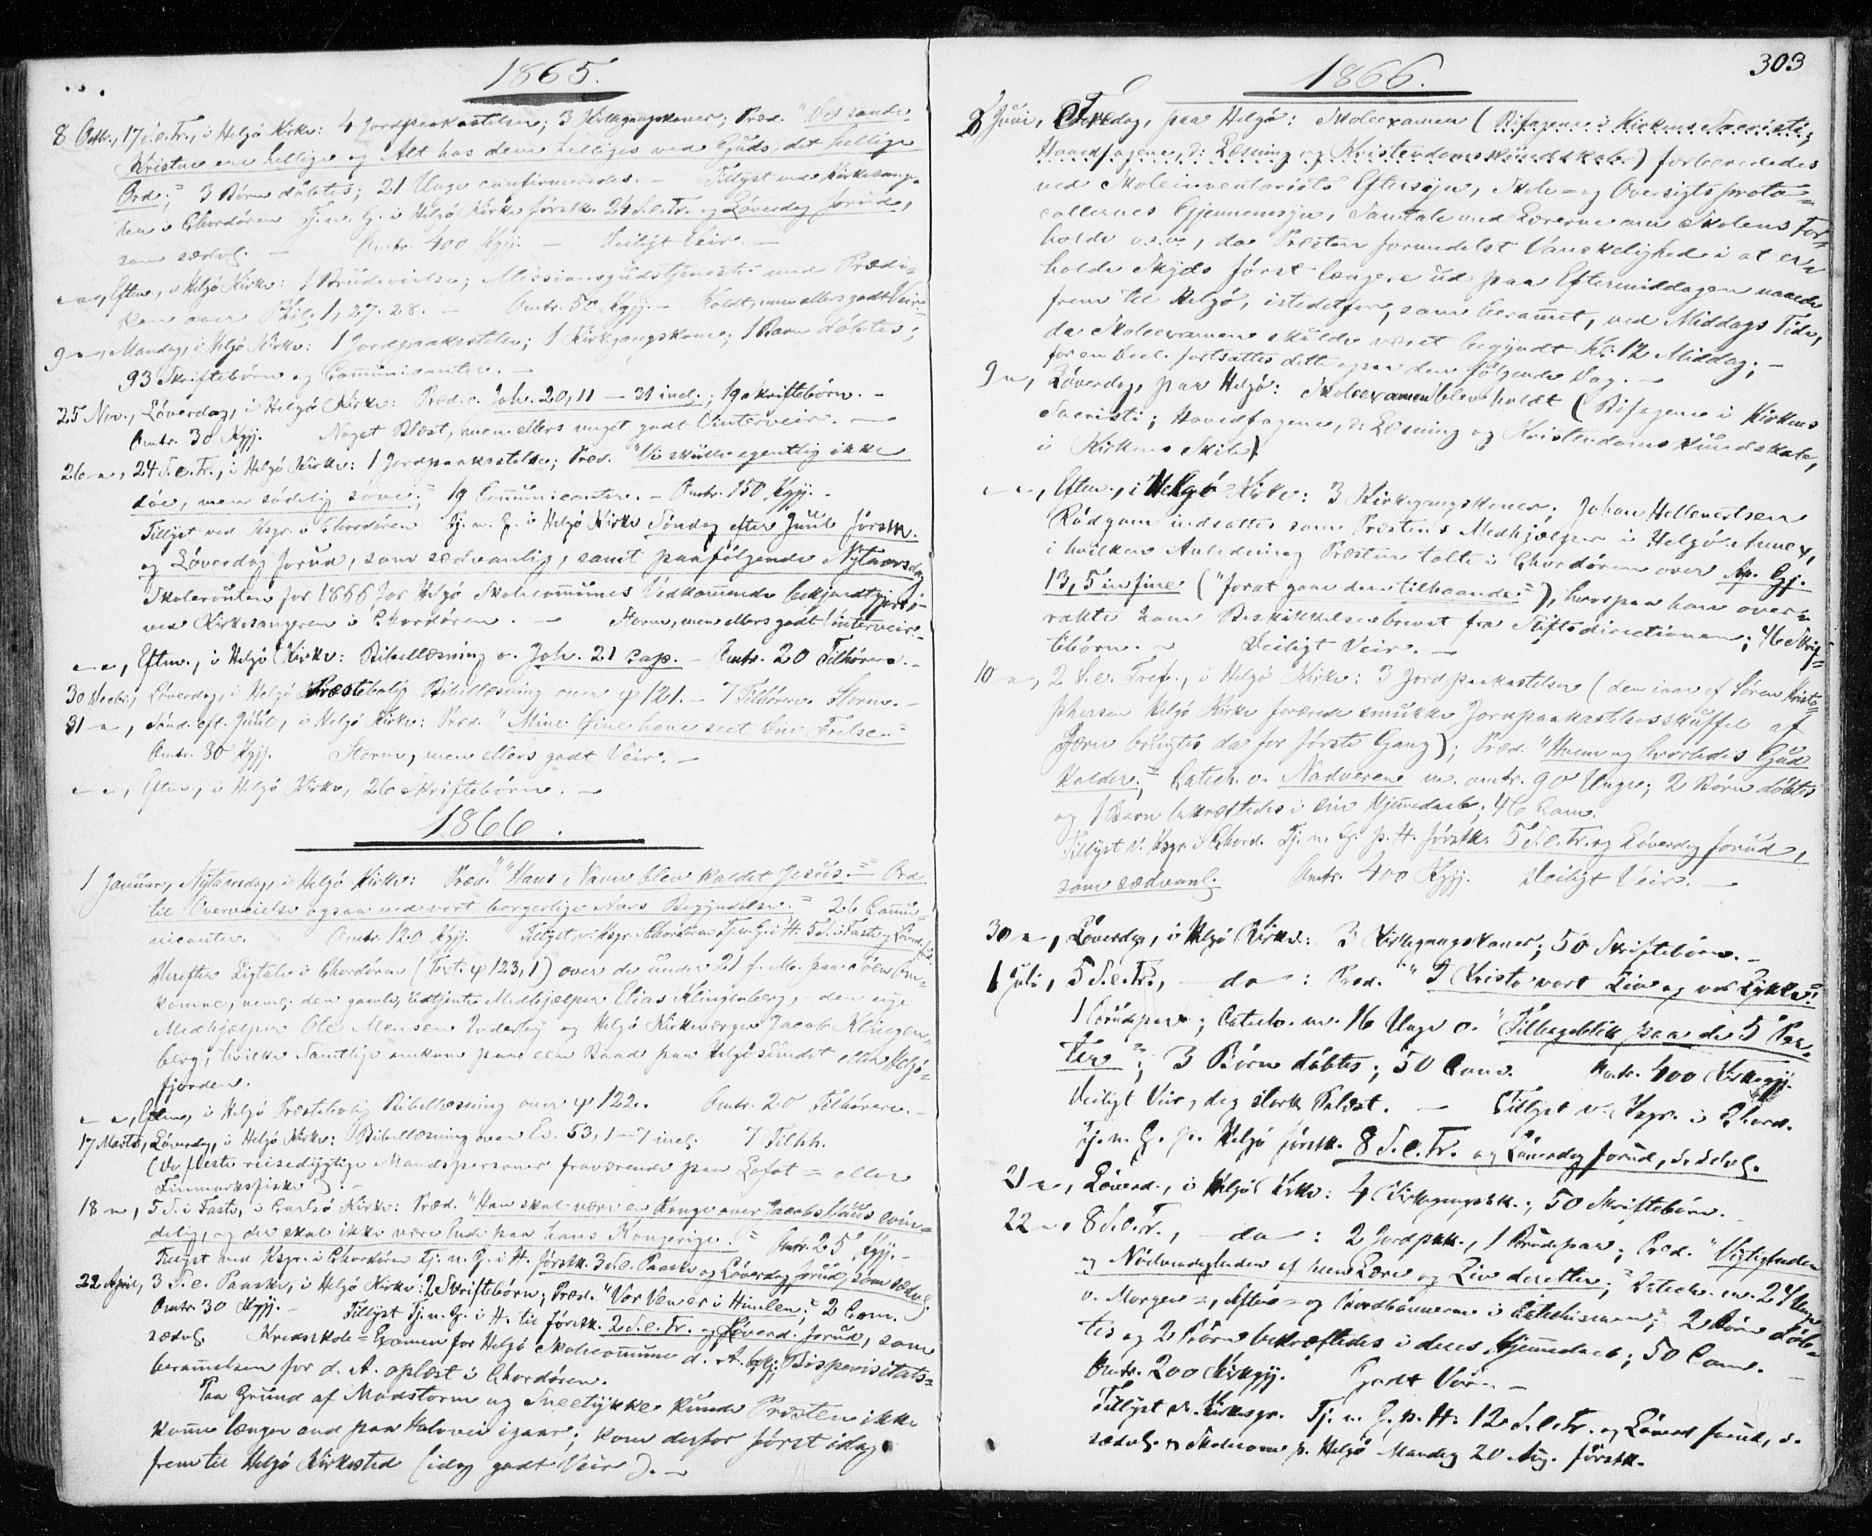 1865.
8 Octbr., 17 S. e. Tr., i Helgø Kirke: 4 Jordpaakastelser; 3 Kirkegangskoner; Præd. "De sande
Kristne ere hellige og Alt hos dem helliges ved Guds, det hellige
Ord;" 3 Børn døbtes; 21 Unge confirmeredes. — Tillyst ved Kirkesange-
ren i Chordøren Tj. n. G. i Helgø Kirke førstk. 24 S. e. Tr. og Løverdag forud,
som sædvl. — Omtr. 400 Kgfj. — Deiligt Veir. —
— " —, Efterm., i Helgø Kirke: 1 Brudevielse; Missionsgudstjeneste med Prædi-
ken over Phil. 1, 27. 28. — Omtr. 50 Kgfj. — Koldt, men ellers godt Veir.
9 — " —, Mandag, i Helgø Kirke: 1 Jordpaakastelse; 1 Kirkegangskone; 1 Barn døbtes;
93 Skriftebørn og Communicanter. —
25 Nov., Løverdag, i Helgø Kirke: Præd. o. Joh. 20, 11 — 31 incl.; 19 Skriftebørn. —
Omtr. 30 Kgfj. Noget Blæst, men ellers meget godt Vinterveir. —
26 — " —, 24 S. e. Tr., i Helgø Kirke: 1 Jordpaakastelse; Præd. "Vi skulle egentlig ikke
döe, men sødelig sove;" 19 Communicanter. — Omtr. 150 Kgfj. —
Tillyst ved Ksgr. i Chordøren Tj. n. G. i Helgø Kirke Søndag efter Juul førstk.
og Løverdag forud, som sædvanlig, samt paafølgende Nytaarsdag.
Skolerouten for 1866 for Helgø Skolecommunes Vedkommende bekjendtgjort
ved Kirkesangeren i Chordøren. — Storm, men ellers godt Vinterveir. —
— " —, Efterm., i Helgø Kirke: Bibellæsning o. Joh. 21 cap. — Omtr. 20 Tilhörere. —
30 Decbr., Løverdag, i Helgø Præstebolig Bibellæsning over ψ 121. — 7 Tilhörere. Storm. —
31 — " —, Sönd. eft. Juul, i Helgø Kirke: Præd. "Mine Øine have seet Din Frelse."
Omtr. 30 Kgfj. Storm, men ellers godt Veir. —
— " —, Efterm., i Helgø Kirke, 26 Skriftebørn. —
1866.
1 Januar, Nytaarsdag, i Helgø Kirke: Præd. "Hans Navn blev kaldet Jesus." Ord
til Overveielse ogsaa ved vort borgerlige Aars Begyndelse." 26 Commu-
nicanter. Omtr. 120 Kgfj. Tillyst v. Ksgr. i Chordøren Tj. n. G. i H. 5 S. i Faste og Løverd. fr.
Derefter Ligtale i Chordøren (Text: ψ 123, 1) over de under 21 f. M. paa Söen om-
komne, neml. den gamle, udtjente Medhjælper Elias Klingenberg, — den nye
Medhjælper Ole Mensen Inderbÿ og Helgø Kirkeværger Jacob Klingen-
berg, hvilke Samtlige omkom paa een Baad paa Helgøsundet eller Helgø-
fjorden.
— " —, Efterm., i Helgø Præstebolig Bibellæsning over ψ 122. Omtr. 20 Tilhörere. —
17 Marts, Løverdag, i Helgø Kirke: Bibellæsning over Es. 53, 1 — 7 incl. 7 Tilhh.
(De fleste reisedygtige Mandspersoner fraværende paa Lofot- eller
Finmarksfiske). —
18 — " —, 5 S. i Faste, i Carlsö Kirke: Præd. "Han skal være en Konge over Jacobs Huus evin-
delig, og der skal ikke være Ende paa hans Kongerige." Omtr. 25 Kgfj. —
Tillyst ved Ksgr. i Chordøren Tj. n. G. i H. førstk. 3 S. e. Paaske og Løverdag forud, som sædvl.
22 April, 3 S. e. Paaske, i Helgø Kirke: 2 Skriftebørn; Præd. "Vor Ven er i Himlen;" 2 Com.
Omtr. 30 Kgfj. — Tillyst Tj. n. G. i H. til førstk. 2 S. e. Tr. og Løverd. forud, som
sædvl. Kredsskole-Examen for Helgø Skolecommune d. A. bekj; Bispevisitats-
berammelsen for d. A. oplæst i Chordøren.
Paa Grund af Modstorm og Sneetykke kunde Præsten ikke
komme længer end paa Halvvei igaar; kom derfor først idag
frem til Helgø Kirkested (idag godt Veir). —
1866.
303
8 Juni, Fredag, paa Helgø: Skoleexamen (Bifagene i Kirkens Sacristi;
Hovedfagene, ɔ: Læsning og Kristendomskundskab) forberededes
ved Skoleinventariets Eftersyn, Skole- og Oversigtsproto-
collernes Gjennemsyn, Samtale med Lærerne om Skolens For-
holde o.s.v., da Præsten formedelst Vanskelighed i at er-
holde Skyds først længere ud paa Eftermiddagen naaede
frem til Helgø, istedetfor, som berammet, ved Middags Tide,
da Skoleexamen skulde været begyndt Kl. 12 Middag; —
for en Deel fortsattes dette ogsaa den følgende Dag. —
9 — " —, Løverdag, paa Helgø: Skoleexamen blev holdt (Bifagene i Kirkens
Sacristi; Hovedfagene, ɔ: Læsning og Kristendomskundskab,
i Kirkens Skib).
— " —, Efterm., i Helgø Kirke: 3 Kirkegangskoner; Johan Hellenertsen
Rödgam indsattes som Præstens Medhjælper i Helgø Annex,
i hvilken Anledning Præsten talte i Chordøren over Ap. Gj.
13, 5 in fine ("for at gaae dem tilhaande"), hvorpaa han over-
rakte ham Beskikkelsesbrevet fra Stiftsdirectionen; 46 Skrif-
tebörn. — Deiligt Veir. —
10 — " —, 2 S. e. Tref., i Helgø Kirke: 3 Jordpaakastelser (den iaar af Sören Kristo-
phersen Helgø Kirke forærede smukke Jordpaakastelsesskuffel af
Jern brugtes da for første Gang); Præd. "Hvem og hvorledes Gud
kalder;" Catech. o. Nadveren m. omtr. 90 Unge; 2 Børn døbtes
og 1 Barn bekræftedes i sin Hjemmedaab; 46 Com.
Tillyst v. Ksgr. i Chord. Tj. n. G. p. H. førstk. 5 S. e. Tr. og Løverdag forud,
som sædvanl. Omtr. 400 Kgfj. Deiligt Veir. —
30 — " —, Løverdag, i Helgø Kirke: 3 Kirkegangskoner; 50 Skriftebørn. —
1 Juli, 5 S. e. Tr., — do: Præd. "I Kristo vort Liv og vor Lykke."
1 Brudepar; Catech. m. 16 Unge o. "Tilbageblik paa de 5 Par-
ter"; 3 Børn døbtes; 50 Com. Omtr. 400 Kirkegfj.
Deiligt Veir, dog stærk Blæst. — Tillyst v. Ksgr. i Chord.
Tj. n. G. p. Helgø førstk. 8 S. e. Tr. og Løverdag forud, s. sædvl.
21 — " —, Løverd., i Helgø Kirke: 4 Kirkegangskk.; 50 Skriftebørn. —
22 — " —, 8 S. e. Tr., — do: 2 Jordpkk., 1 Brudepar; Præd. "Vigtigheden
og Nödvendigheden af reen Lære og Liv deretter;" Catech. m. 24 Unge
o. Morgen-, Aften- og Bordbönnerne i Catechismen; 2 Börn døb-
tes og 2 Børn bekræftedes i deres Hjemmedaab; 50 Com. —
Omtr. 200 Kirkegfj. Godt Veir. —
Tillyst v. Kirkesgr. Tj. n. G. p. H. 12 S. e. Tr. og Løverd. forud, s.
sædvl. og Skoleexam. p. Helgø Mandag 20 Aug. førstk.